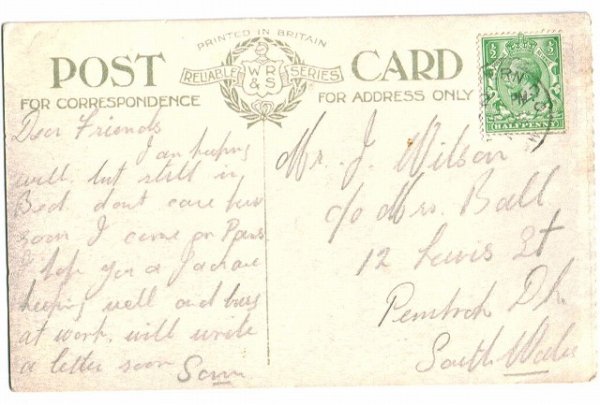 PRINTED IN BRITAIN
POST CARD
RELIABLE WR&S SERIES
FOR CORRESPONDENCE
FOR ADDRESS ONLY
½ ½
HALFPENNY
Dear Friends
I am keeping
well, but still in
Bed. dont care how
soon I come on
I hope you & are
keeping well and busy
at work. will write
a letter soon
Mr. J. Wilson
c/o Mrs. Ball
12 Lewis St
Pembrok Dk.
South Wales